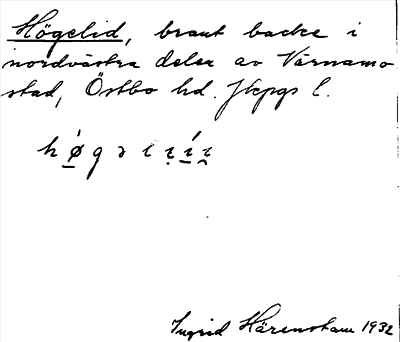 Högelid, brant backe i
nordvästra delen av Värnamo
stad, Östbo hd. Jkpgs l.
Ingrid Härenstam 1932